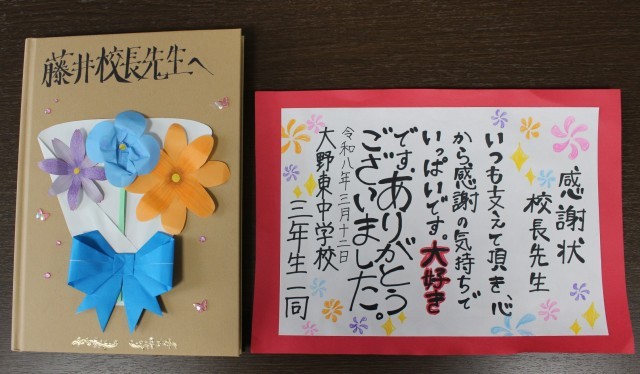 藤井校長先生へ
感謝状
校長先生
いつも支えて頂き、心
から感謝の気持ちで
いっぱいです。大好き
です。ありがとう
ございました。
令和八年三月十二日
大野東中学校
三年生一同